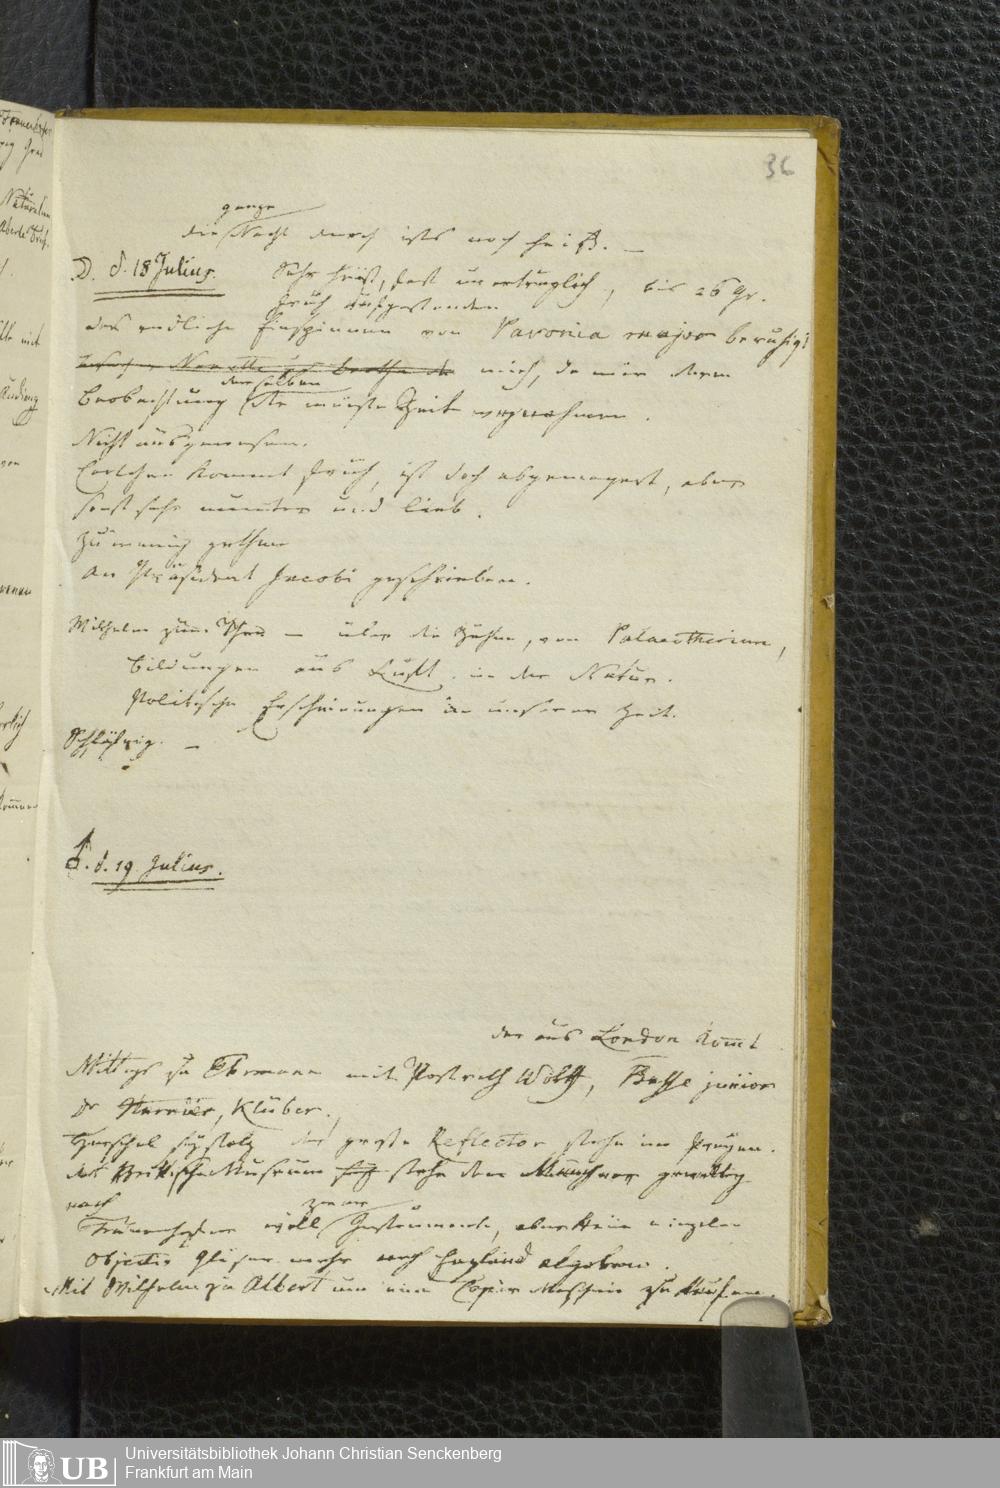 36
ganze
die Nacht durch ists noch heiß. —
D. d. 18 Julius. Sehr heiß, fast unerträglich, bis 26 Gr.
früh aufgestanden
das endliche Einspinnen von Pavonia major beruhigt
mich, da mir deren
derselben
Beobachtung die meiste Zeit
Nicht ausgewesen.
Carlchen kommt früh, ist doch abgemagert, aber
sonst sehr munter und lieb.
Zu wenig gethan
An Präsident Jacobi geschrieben.
Wilhelm zum Thee — über die Zähne, von Palaeotherium,
Bildungen aus Luft in der Natur.
Politische Erscheinungen in unserer Zeit.
Schläfrig. —
d. 19 Julius.
der aus London kommt
Mittags zu Ehrmann mit Postrath Wölff, Busse junior
Dr Harnier, Klüber.
Herschel sey stolz der große Reflector stehe im
das Brittische Museum stehe dem Münchner gewaltig
nach
Frauenhofer will Instrumente, aber keine einzelne
Objectiv Gläser mehr nach England abgeben.
Mit Wilhelm zu Albert um eine Copir Maschine zu kaufen.
Universitätsbibliothek Johann Christian Senckenberg
Frankfurt am Main
UB